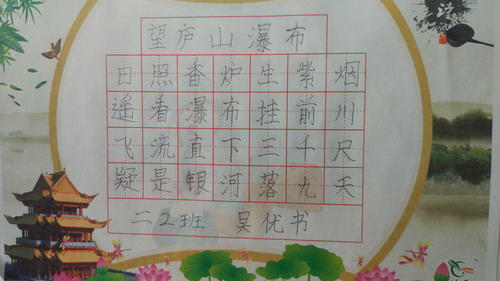 望庐山瀑布
日照香炉生紫烟
遥看瀑布挂前川
飞流直下三千尺
疑是银河落九天
二2班 吴优书